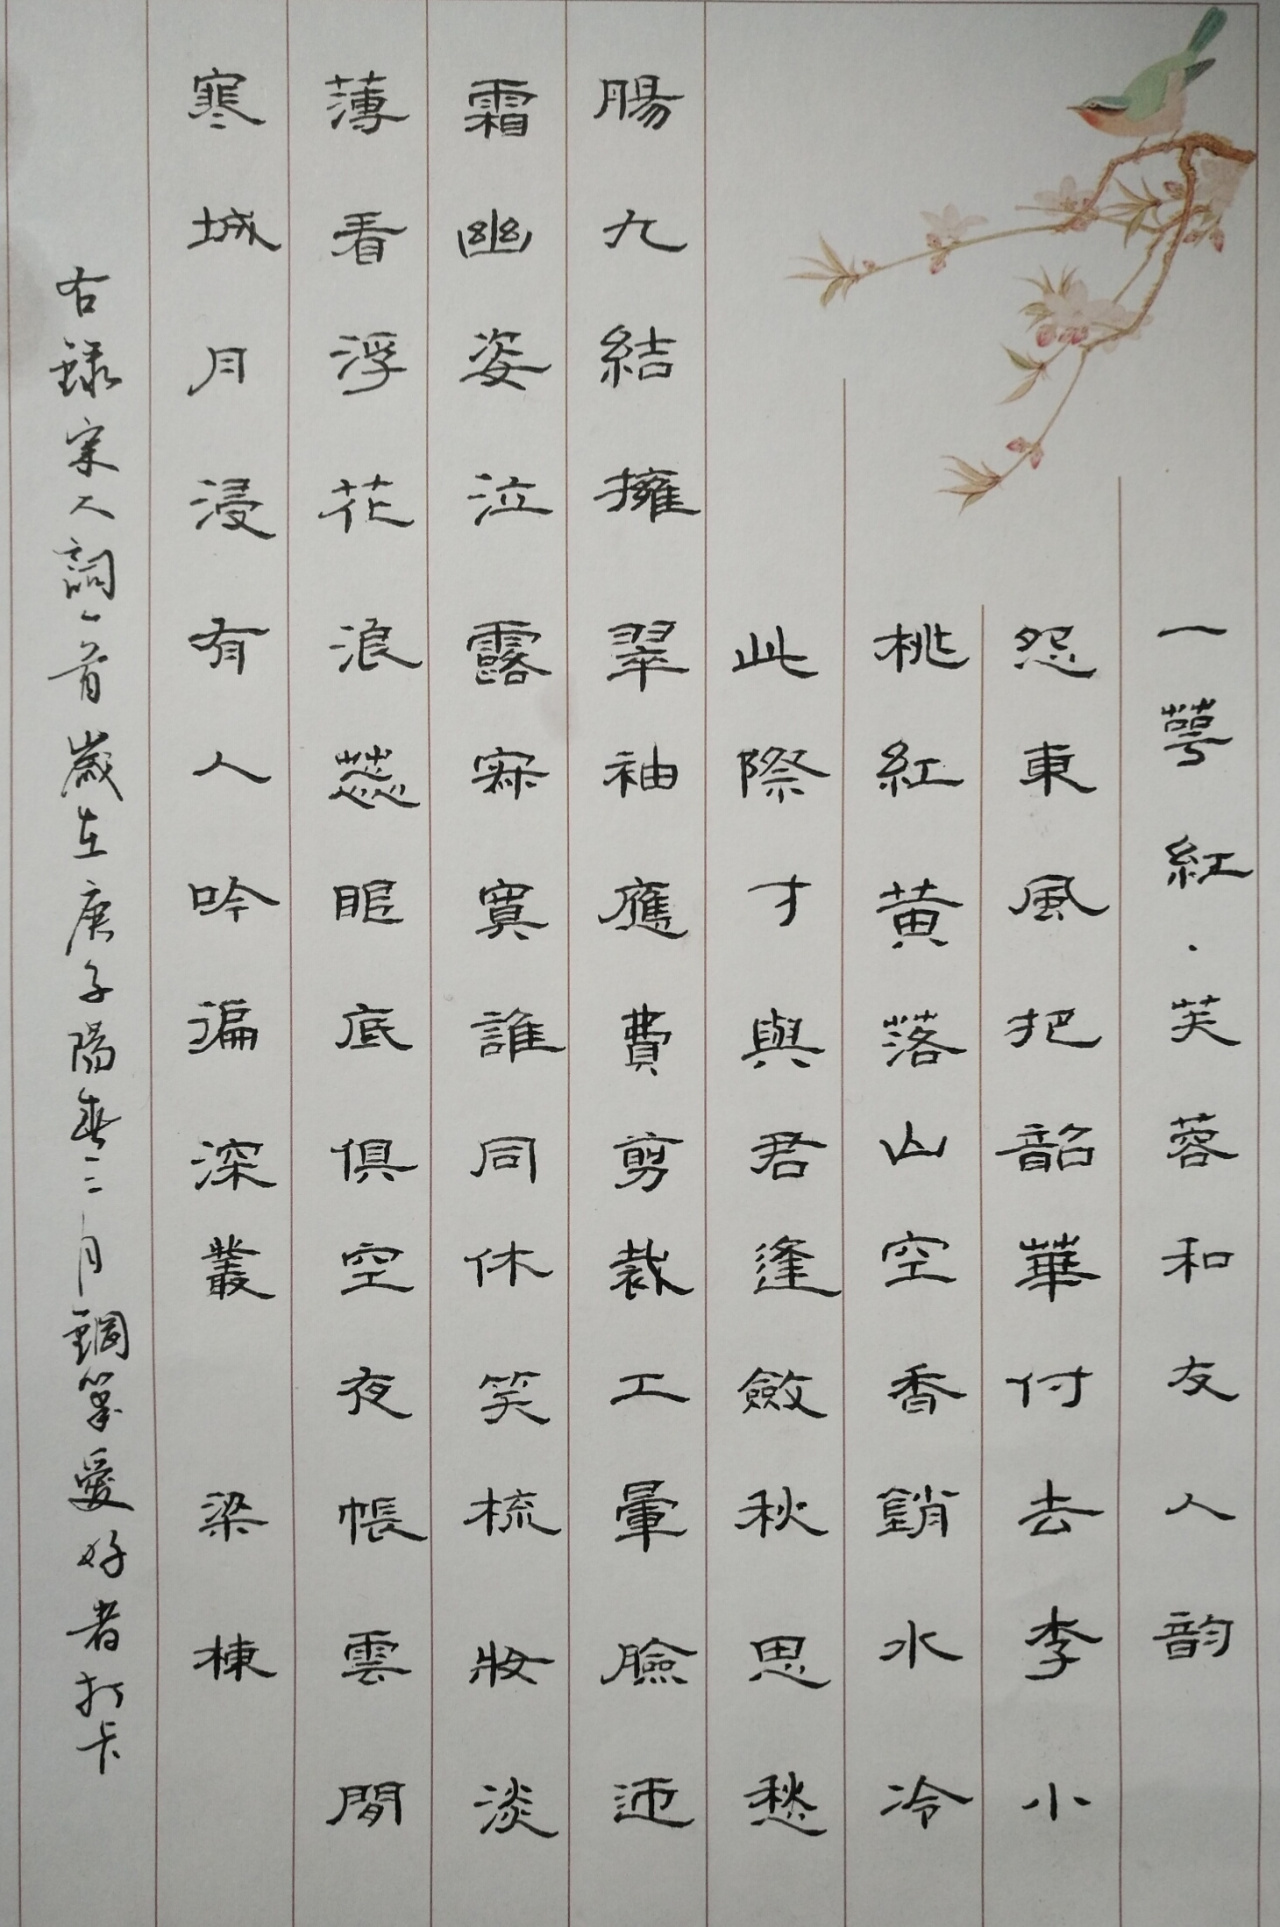 一萼紅·芙蓉和友人韵
怨東風把韶華付去李小
桃紅黄落山空香銷水冷
此際才與君逢斂秋思愁
腸九結擁翠袖應費剪裁工暈臉迊
霜幽姿泣露寂寞誰同休笑梳妝淡
薄看浮花浪蕊眼底俱空夜帳雲閒
寒城月浸有人吟徧深叢 梁棟
右録宋人詞一首歲在庚子陽春三月鋼筆愛好者打卡